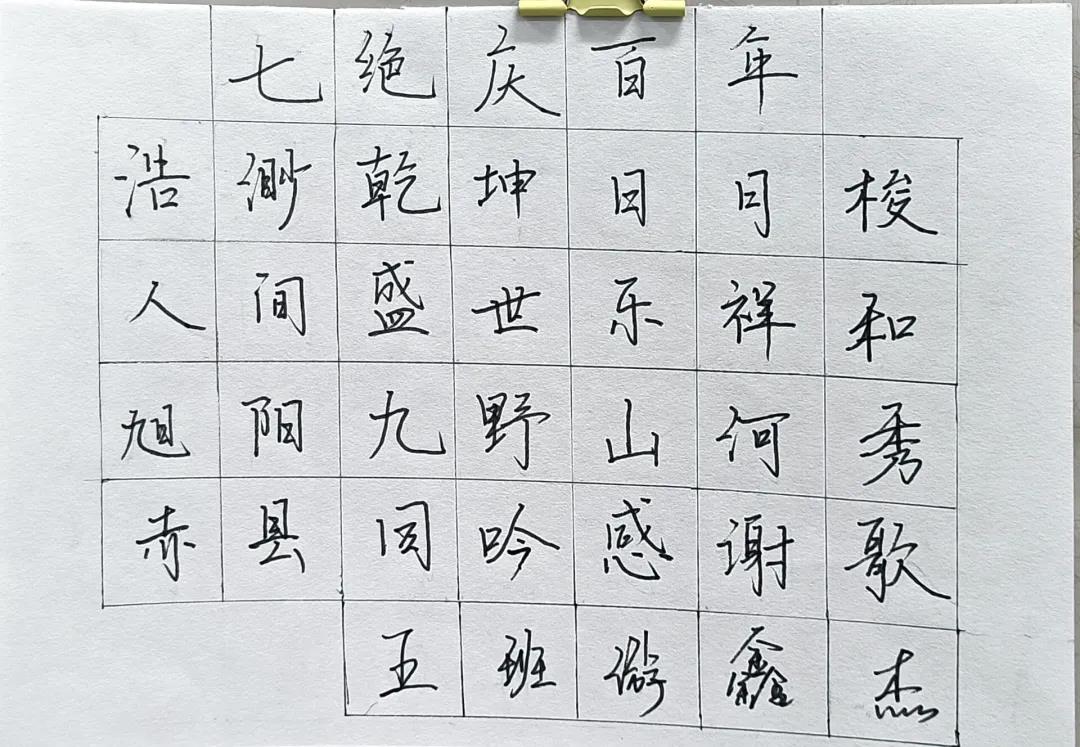 七绝庆百年
浩渺乾坤日月梭
人间盛世乐祥和
旭阳九野山河秀
赤县同吟感谢歌
五班游鑫杰